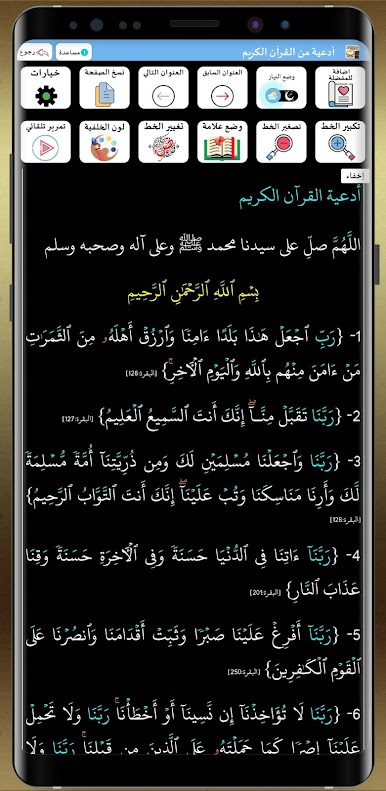 أدعية من القرآن الكريم
مساعدة
رجوع
اضافة للمفضلة
وضع النهار
العنوان السابق
العنوان التالي
نسخ الصفحة
خيارات
تكبير الخط
تصغير الخط
وضع علامة
تغيير الخط
لون الخلفية
تمرير تلقائي
إخفاء
أدعية القرآن الكريم
اللَّهُمَّ صلِّ على سيدنا محمد ﷺ وعلى آله وصحبه وسلم
بِسْمِ ٱللَّهِ ٱلرَّحْمَٰنِ ٱلرَّحِيمِ
1- {رَبِّ ٱجْعَلْ هَٰذَا بَلَدًا ءَامِنًا وَٱرْزُقْ أَهْلَهُۥ مِنَ ٱلثَّمَرَٰتِ
مَنْ ءَامَنَ مِنْهُم بِٱللَّهِ وَٱلْيَوْمِ ٱلْأَخِرِۚ} [البقرة:126]
2- {رَبَّنَا تَقَبَّلْ مِنَّآۖ إِنَّكَ أَنتَ ٱلسَّمِيعُ ٱلْعَلِيمُ} [البقرة:127]
3- {رَبَّنَا وَٱجْعَلْنَا مُسْلِمَيْنِ لَكَ وَمِن ذُرِّيَّتِنَآ أُمَّةً مُّسْلِمَةً
لَّكَ وَأَرِنَا مَنَاسِكَنَا وَتُبْ عَلَيْنَآۖ إِنَّكَ أَنتَ ٱلتَّوَّابُ ٱلرَّحِيمُ}
[البقرة:128]
4- {رَبَّنَآ ءَاتِنَا فِى ٱلدُّنْيَا حَسَنَةً وَفِى ٱلْأَخِرَةِ حَسَنَةً وَقِنَا
عَذَابَ ٱلنَّارِ} [البقرة:201]
5- {رَبَّنَآ أَفْرِغْ عَلَيْنَا صَبْرًا وَثَبِّتْ أَقْدَامَنَا وَٱنصُرْنَا عَلَى
ٱلْقَوْمِ ٱلْكَٰفِرِينَ} [البقرة:250]
6- {رَبَّنَا لَا تُؤَاخِذْنَآ إِن نَّسِينَآ أَوْ أَخْطَأْنَاۚ رَبَّنَا وَلَا تَحْمِلْ
عَلَيْنَآ إِصْرًا كَمَا حَمَلْتَهُۥ عَلَى ٱلَّذِينَ مِن قَبْلِنَاۚ رَبَّنَا وَلَا